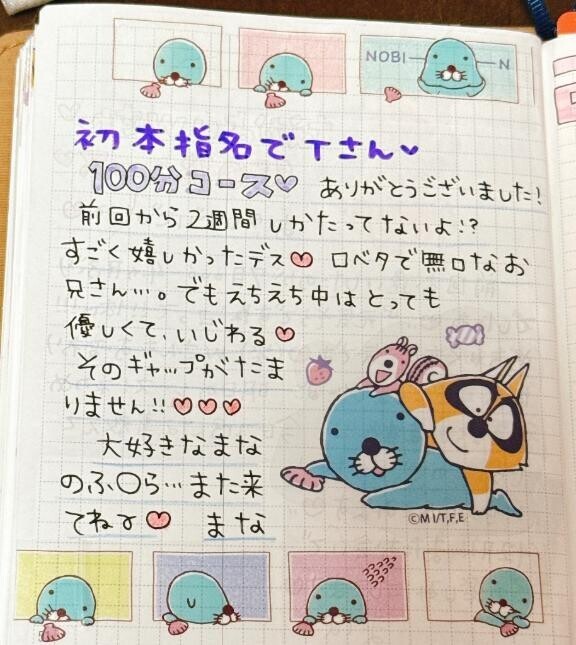 NOBI N
初本指名でTさん♥
100分コース♡ ありがとうございました!
前回から2週間しかたってないよ!?
すごく嬉しかったデス♥ 口ベタで無口なお
兄さん…。でもえちえち中はとっても
優しくて、いじわる♥
そのギャップがたま
りません!!♥♥♥
大好きなまな
のふ〇ら…また来
てねɤ♥ まな
©M.I/T,F,E